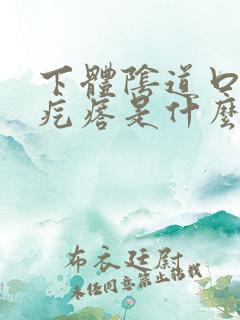 下體陰道口
疙瘩是什麼
布衣廷尉
未经同意禁止转载